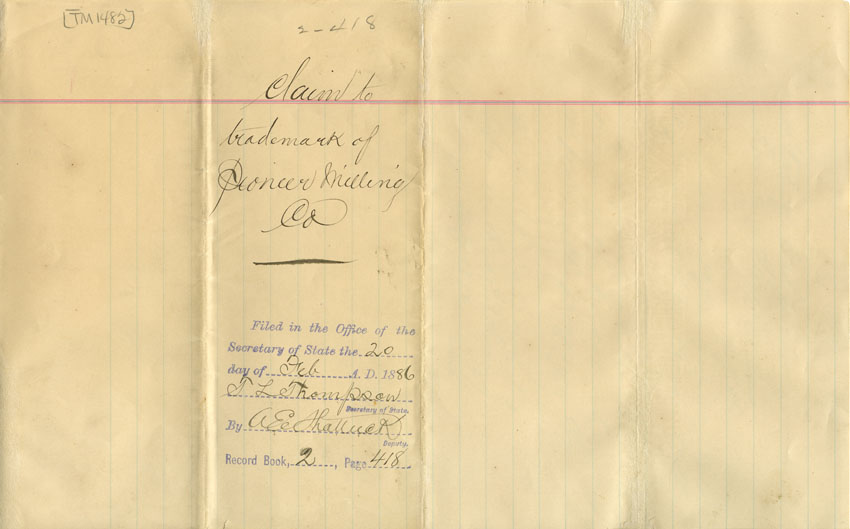 [TM1482]
2-418
Claim to
trademark of
Pioneer Milling
Co
Filed in the Office of the
Secretary of State the 20
day of Feb A. D. 1886
T L Thompson
Secretary of State.
By A E Shattuck
Deputy.
Record Book, 2, Page 418